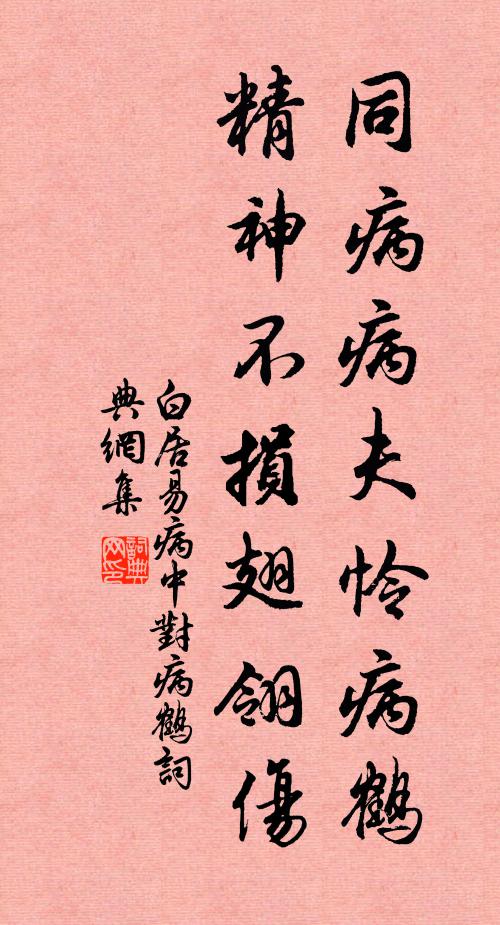 同病病夫怜病鶴
精神不損翅翎傷
白居易病中對病鶴詞
典網集
詞典網印